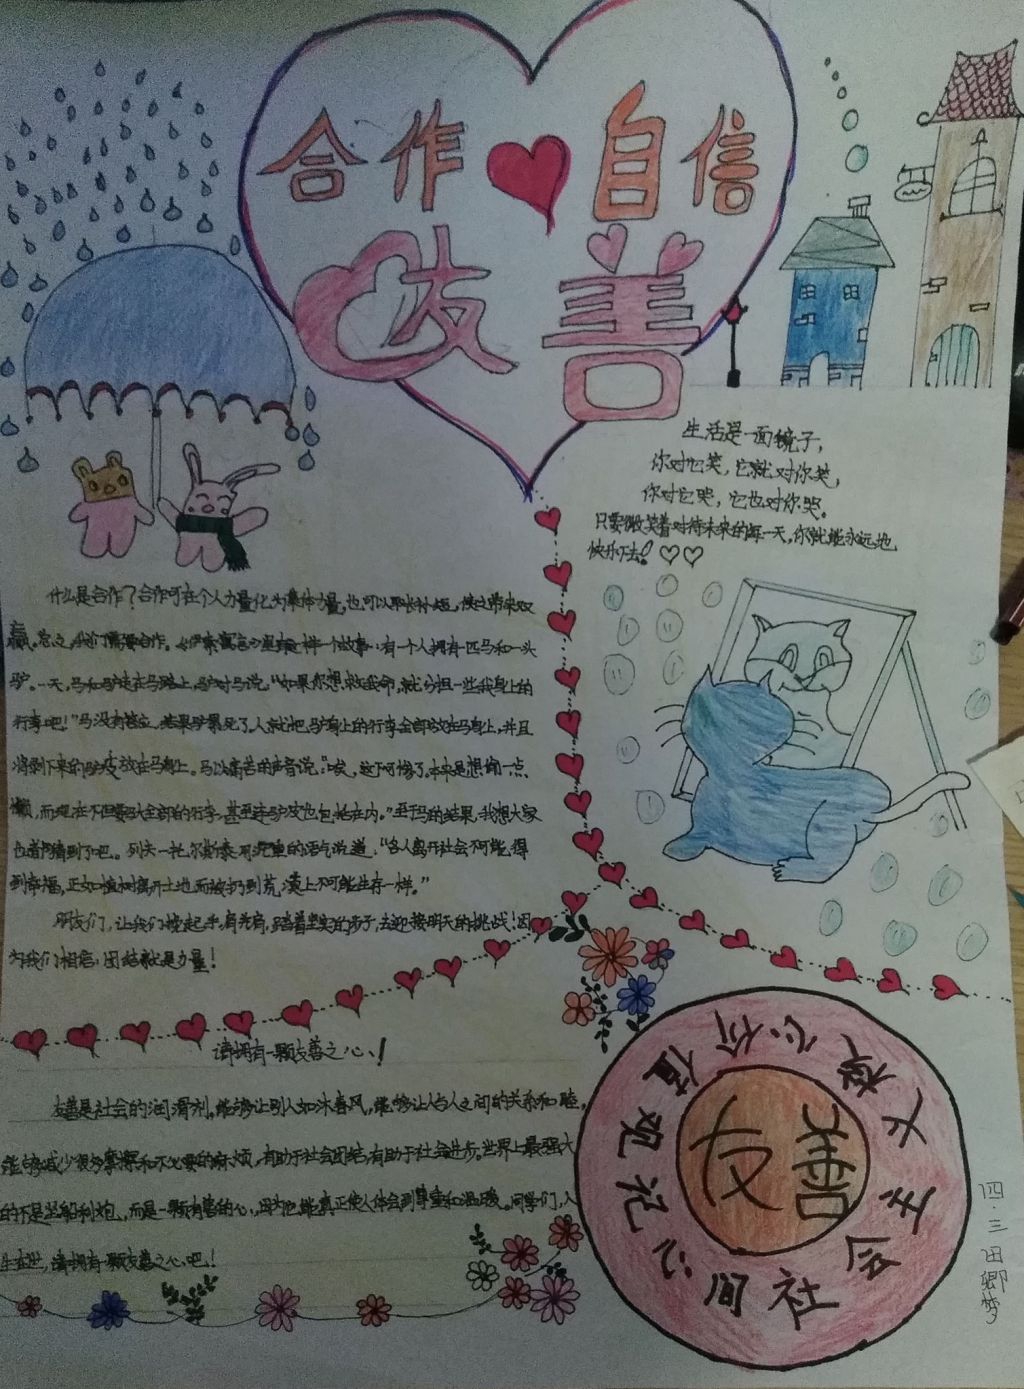 合作 自信
友善
生活是一面镜子，
你对它笑，它就对你笑，
你对它哭，它也对你哭。
只要微笑着对待未来的每一天，你就能永远地
快乐下去！
什么是合作？合作可在个人力量化为集体力量，也可以取长补短，使之带来双
赢。总之，我们需要合作。《伊索寓言》里有这样一个故事：有一个人拥有一匹马和一头
驴。一天，马和驴走在马路上，驴对马说：“如果你想救我命，就分担一些我身上的
行李吧！”马没有答应，结果驴累死了。人就把驴身上的行李全部放在马身上，并且
将剩下来的驴皮放在马身上。马以痛苦的声音说：“唉，这下可惨了。本来是想偷一点
懒，而现在不但要驮全部的行李，甚至连驴皮也包括在内。”至于马的结果，我想大家
也都猜到了吧。列夫—托尔斯泰 的语气说道：“各人离开社会不可能得
到幸福，正如植树离开土地而被扔到荒漠上不可能生存一样。”
朋友们，让我们挽起手，肩并肩，踏着坚实的步子，去迎接明天的挑战！因
为我们相信：团结就是力量！
请拥有一颗友善之心！
友善是社会的润滑剂。能够让别人如沐春风，能够让人与人之间的关系和睦，
能够减少很多摩擦和不必要的麻烦，有助于社会团结，有助于社会进步。世界上最强大
的不是坚船利炮，而是一颗友善的心，因为它能真正使人体会到尊重和温暖。同学们，人
生在世，请拥有一颗友善之心吧！
社会主义核心价值观记心间
友善
四·三 田卿梦